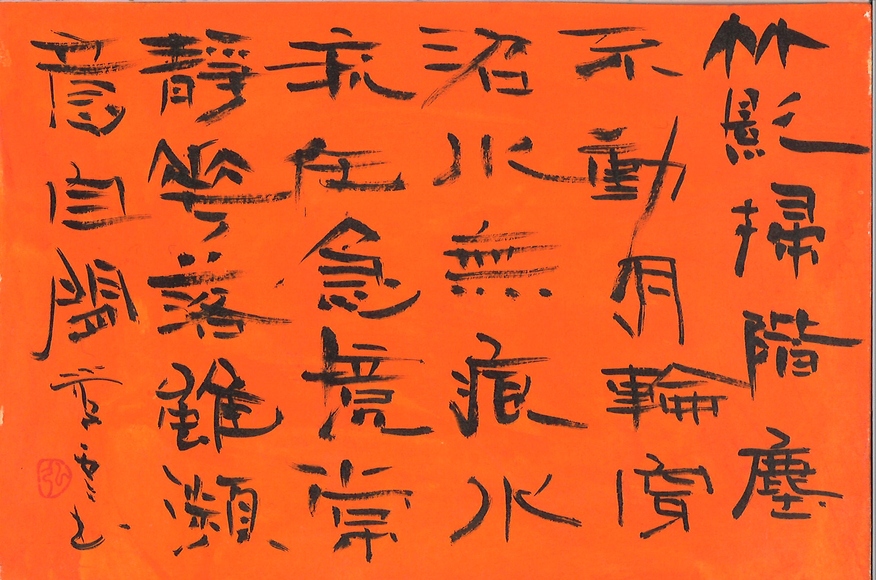 竹影掃階塵
不動月輪穿
沼水無痕水
流任急境常
靜花落雖瀕
意自閒
弘